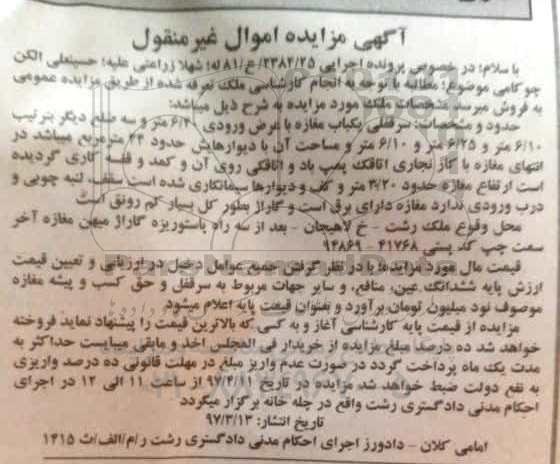 آگهی مزایده اموال غیرمنقول
با سلام: در خصوص پرونده اجرایی ۲۳۸۴/۲۵/ع/۸۱ له: شهلا زراعتی علیه: حسینعلی الکن
چوکامی موضوع: مطالبه با توجه به انجام کارشناسی ملک تعرفه شده از طریق مزایده عمومی
به فروش میرسد مشخصات ملک مورد مزایده به شرح ذیل میباشد:
حدود و مشخصات: سرقفلی یکباب مغازه با عرض ورودی ۶/۴ متر و سه ضلع دیگر بترتیب
۶/۱۰ متر و ۶/۲۵ متر و ۶/۱۰ متر و مساحت آن با دیوارهایش حدود ۴۴ مترمربع میباشد در
انتهای مغازه با کار نجاری اتاقک پمپ باد و اتاقکی روی آن و کمد و قفسه کاری گردیده
است ارتفاع مغازه حدود ۳/۲۰ متر و کف و دیوارها سیمانکاری شده است سقف لنبه چوبی و
درب ورودی ندارد مغازه دارای برق است و گاراژ بطور کل بسیار کم رونق است
محل وقوع ملک رشت - خ لاهیجان - بعد از سه راه پاستوریزه گاراژ میهن مغازه آخر
سمت چپ کد پستی ۴۱۷۶۸ - ۹۴۸۶۹
قیمت مال مورد مزایده: با در نظر گرفتن جمیع عوامل دخیل در ارزیابی و تعیین قیمت
ارزش پایه ششدانگ عین، منافع، و سایر جهات مربوط به سرقفل و حق کسب و پیشه مغازه
موصوف نود میلیون تومان برآورد و بعنوان قیمت پایه اعلام میشود
مزایده از قیمت پایه کارشناسی آغاز و به کسی که بالاترین قیمت را پیشنهاد نماید فروخته
خواهد شد ده درصد مبلغ مزایده از خریدار فی المجلس اخذ و مابقی میبایست حداکثر به
مدت یک ماه پرداخت گردد در صورت عدم واریز مبلغ در مهلت قانونی ده درصد واریزی
به نفع دولت ضبط خواهد شد مزایده در تاریخ ۹۷/۴/۱۱ از ساعت ۱۱ الی ۱۲ در اجرای
احکام مدنی دادگستری رشت واقع در چله خانه برگزار میگردد
تاریخ انتشار: ۹۷/۳/۱۳
امامی کلان - دادورز اجرای احکام مدنی دادگستری رشت ر/م/الف/ث ۱۴۱۵